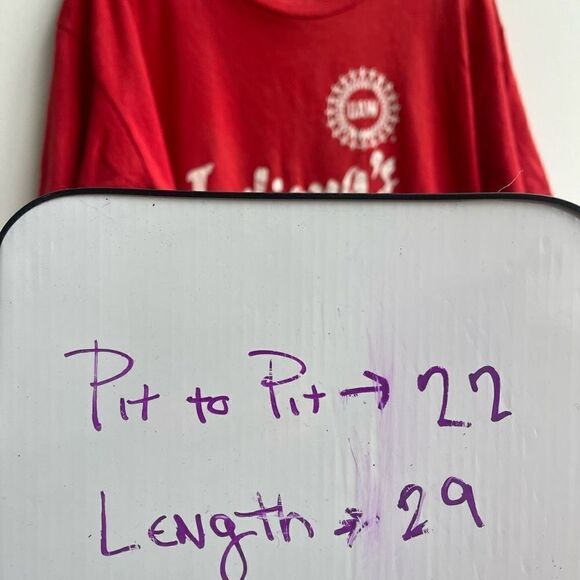 UAW
Indiana's
Pit to Pit → 22
Length → 29